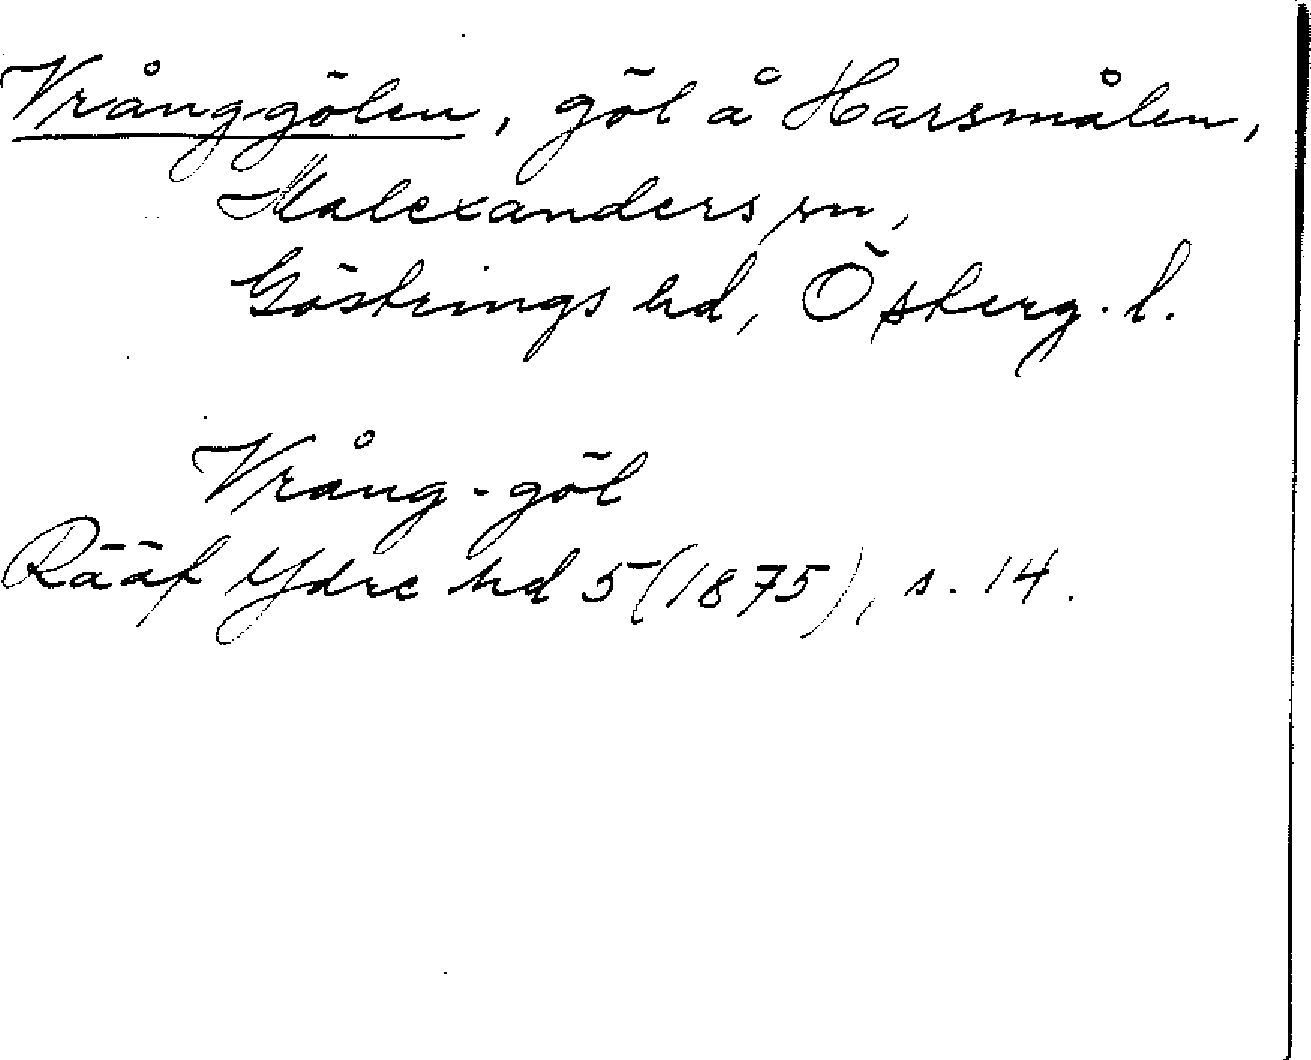 Vrånggölen, göl å Harsmålen,
Malexanders sn,
Göstrings hd, Österg. l.
Vrång-göl
Rääf Ydre hd 5 (1875), s. 14.